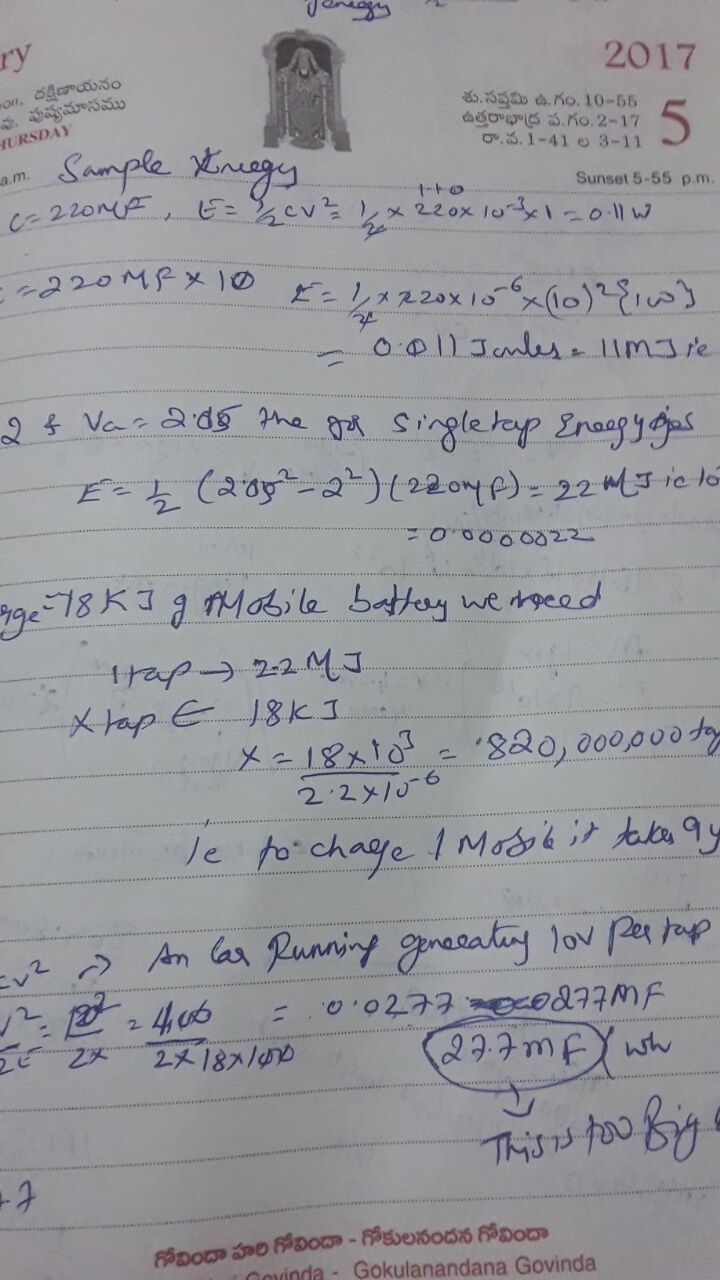 ry
2017
దక్షిణాయనం
పుష్యమాసము
HURSDAY
శు.సప్తమి ఉ.గం.10-55
ఉత్తరాభాద్ర ప.గం.2-17
రా.వ.1-41 ల 3-11
5
a.m.
Sunset 5-55 p.m.
Sample Energy
C=220MF, E=1/2CV²=1/2×220×10⁻³×1=0.11W
110
=220MF×10 E=1/2×220×10⁻⁶×(10)²{10}
= 0.011 Joules = 11MJ ie
2 & Va=2.05 the Single tap Energy
E=1/2(2.05²-2²)(220MF)=22MJ ie
=0.0000022
rge=18KJ g Mobile battery we need
1tap→2.2MJ
X tap ∈ 18KJ
X=18×10³/2.2×10⁻⁶=820,000,000
ie to charge 1 Mobile it takes 9y
CV² → An Car Running generating 10V Per tap
V²/2E=/2×=400/2×18×100=0.0277 0277MF
27.7mF
This is too Big
+7
గోవిందా హరి గోవిందా - గోకులనందన గోవిందా
Govinda - Gokulanandana Govinda